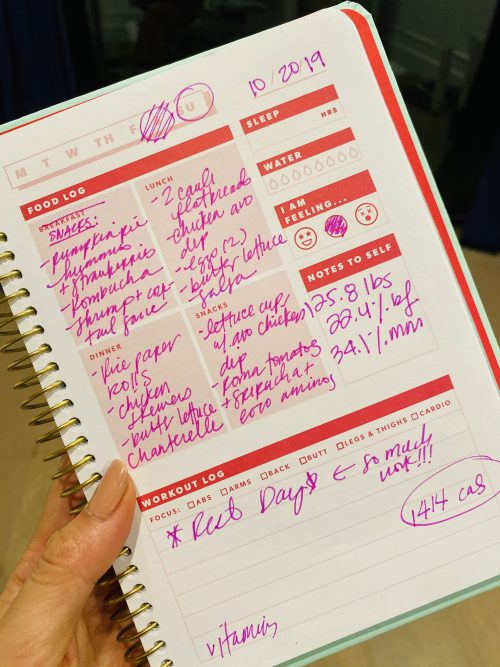 10/20/19
M T W TH F SU
FOOD LOG
BREAKFAST
SNACKS:
- pumpkin pie
hummus
+ strawberries
- kombucha
- shrimp + cock
tail sauce
LUNCH
- 2 cauli
flatbreads
- chicken avo
dip
- egg (2)
- butter lettuce
- salsa
DINNER
- rice paper
rolls
- chicken
skewers
- butter lettuce
chanterelle
SNACKS
- lettuce cups
w/ avo chicken
dip
- roma tomatos
+ sriracha +
coco aminos
SLEEP
HRS
WATER
I AM
FEELING...
NOTES TO SELF
125.8 lbs
22.4% bf
34.1% mm
WORKOUT LOG
FOCUS: ABS ARMS BACK BUTT LEGS & THIGHS CARDIO
* Rest Day * ← so much
work!!!
1414 cas
vitamins